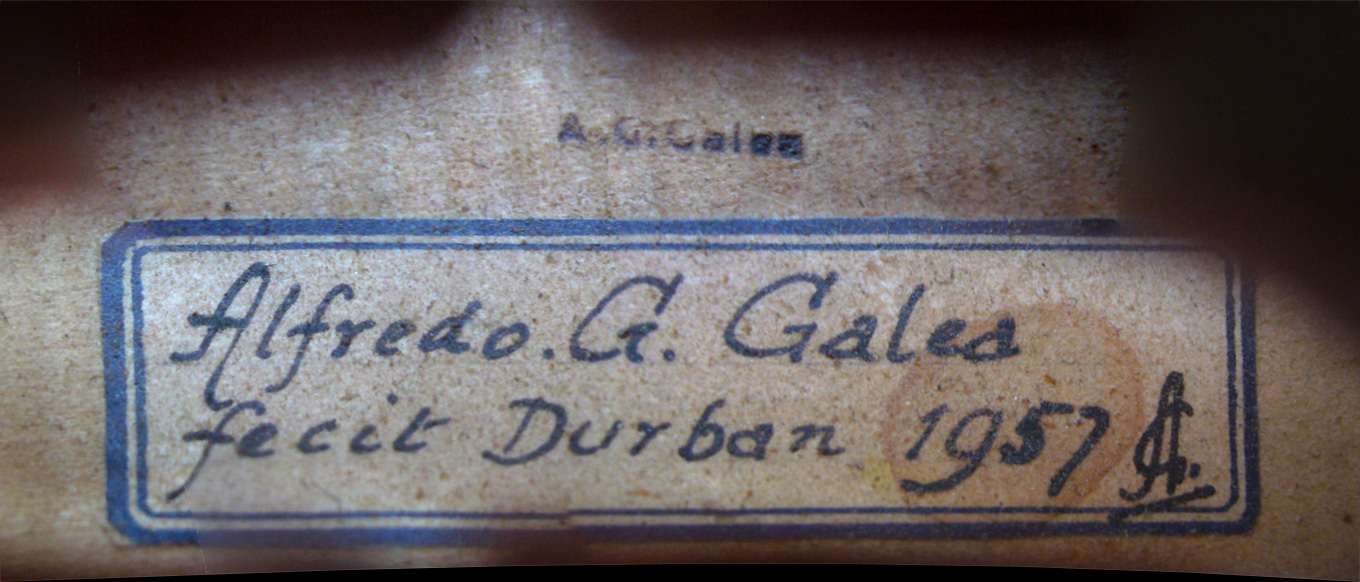 A.G.Galea
Alfredo.G. Galea
fecit Durban 1957